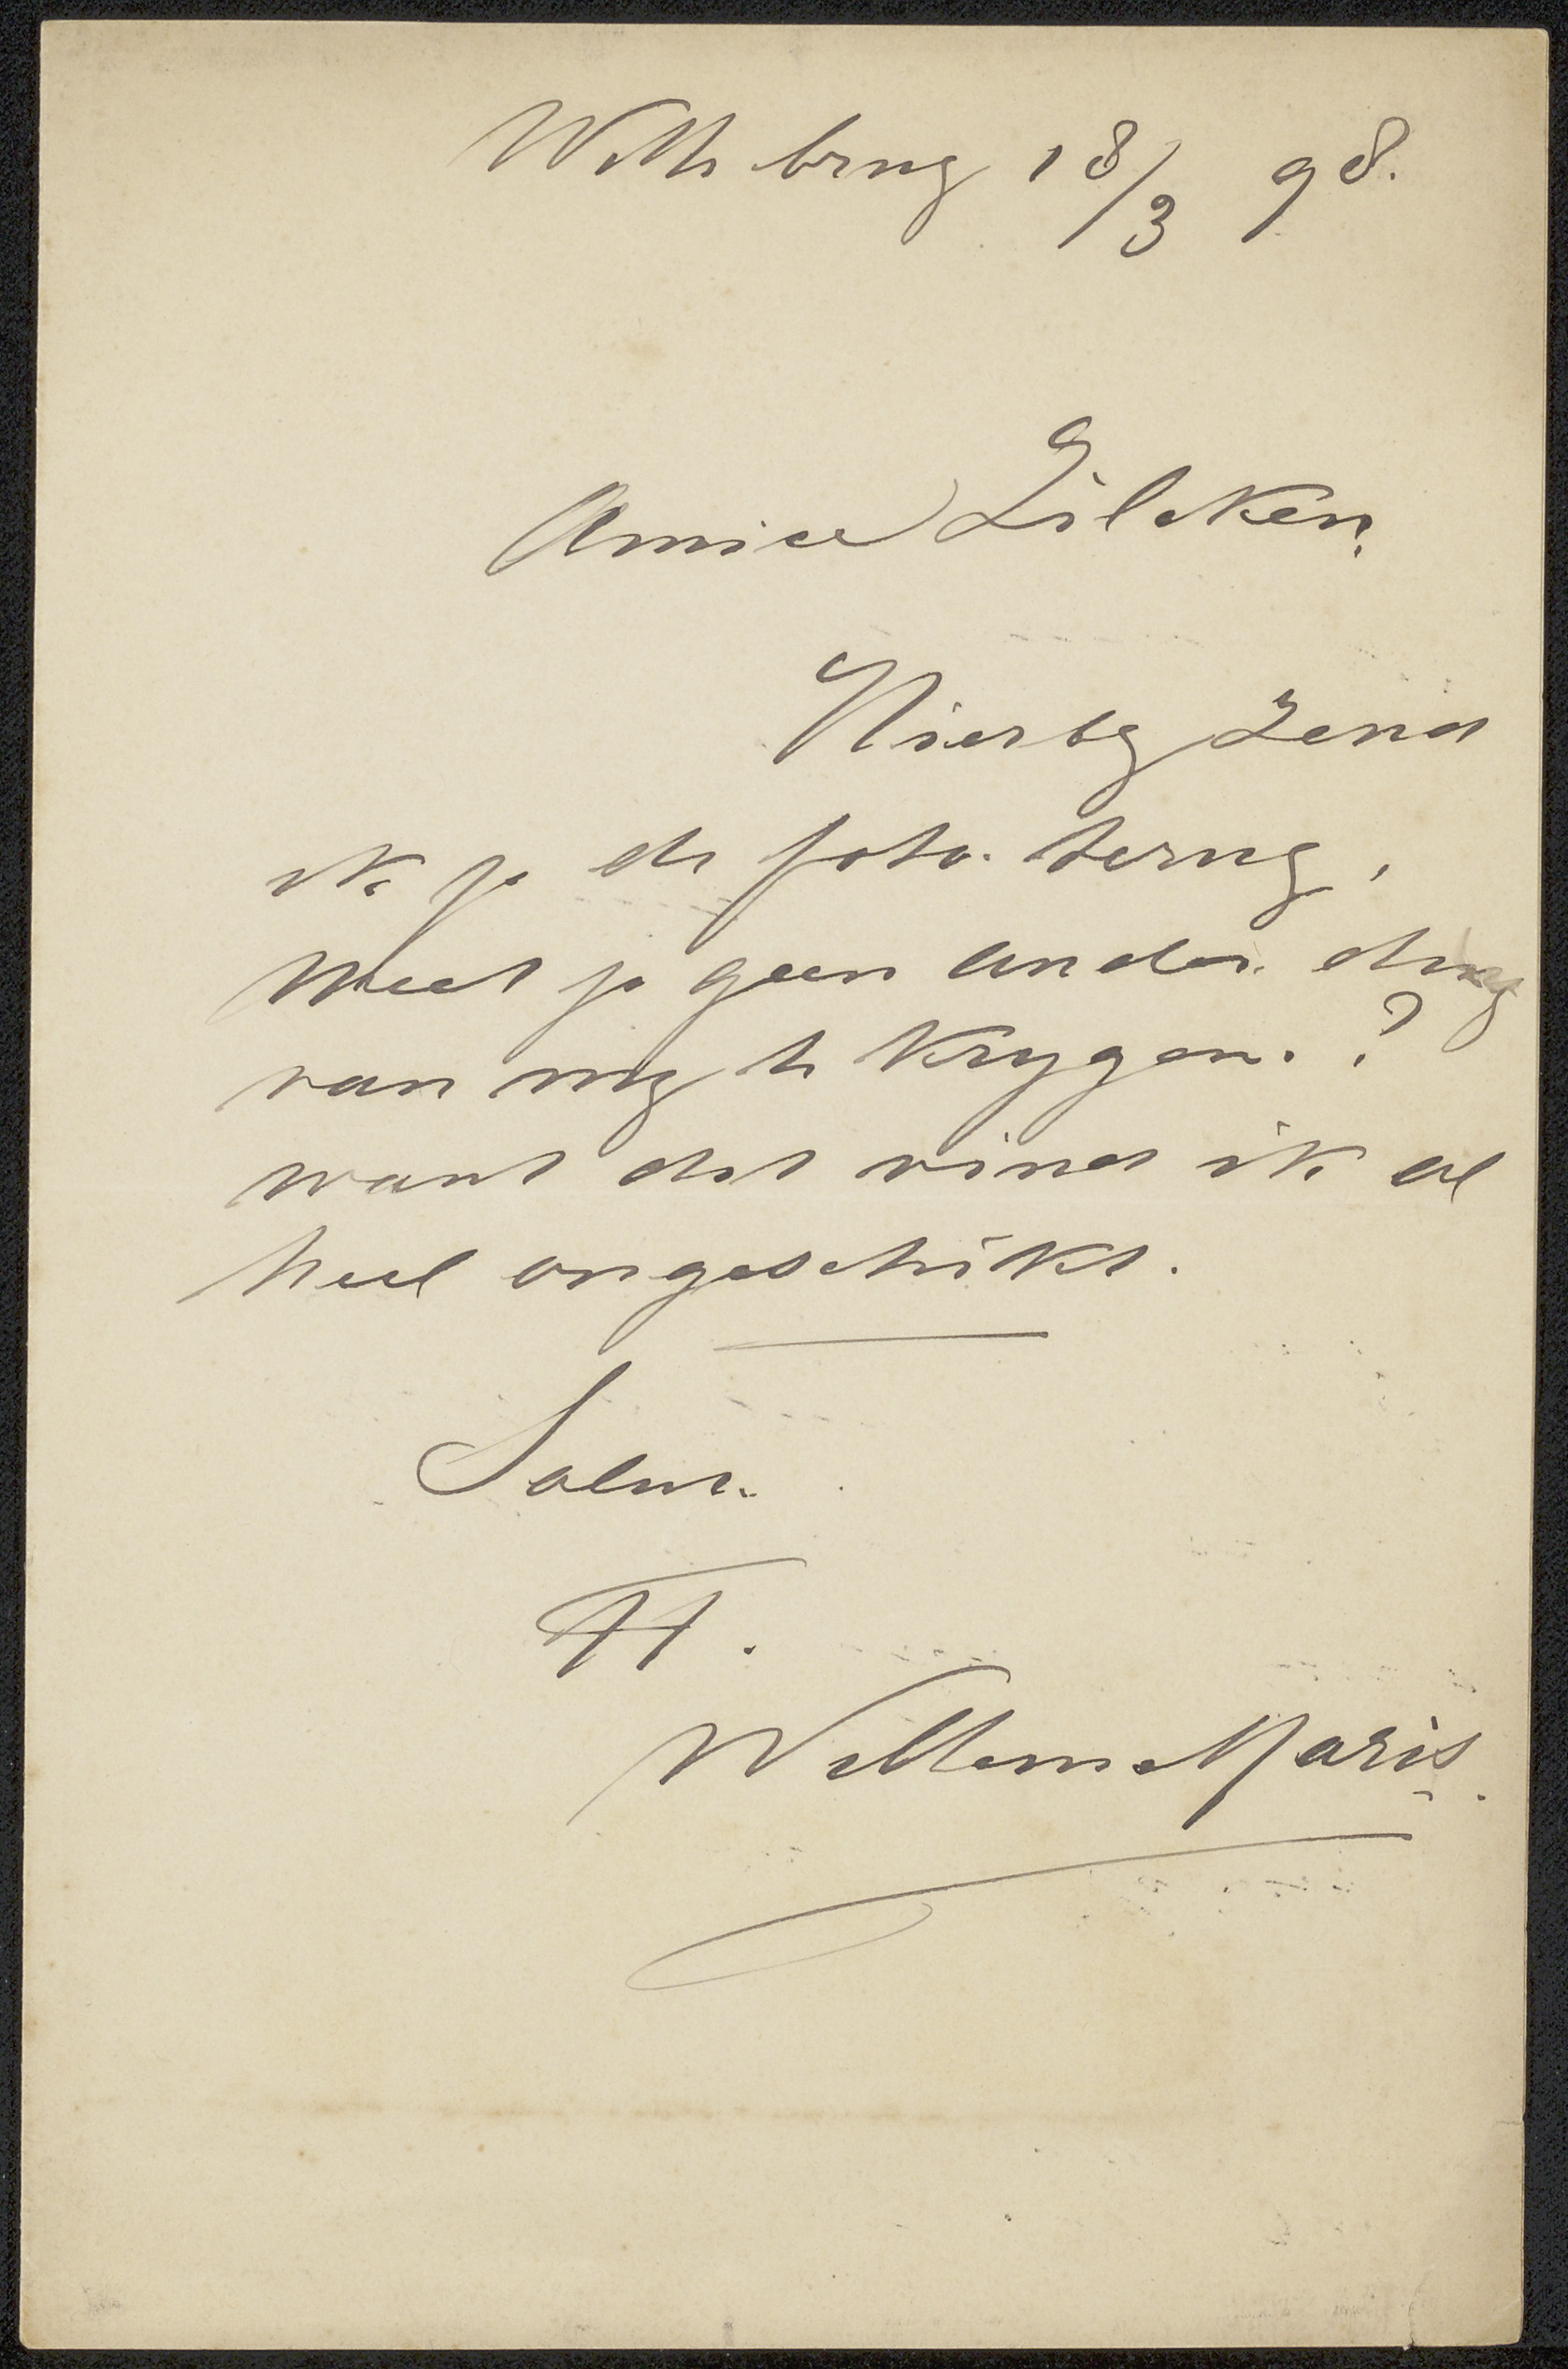 Witte brug 18/3 98.
Amice Zilcken.
Hierbij zend
ik je de foto terug,
weet je geen ander ding
van mij te krijgen.?
want dit vind ik al
heel ongeschikt.
Salut.
tt.
Willem Maris.